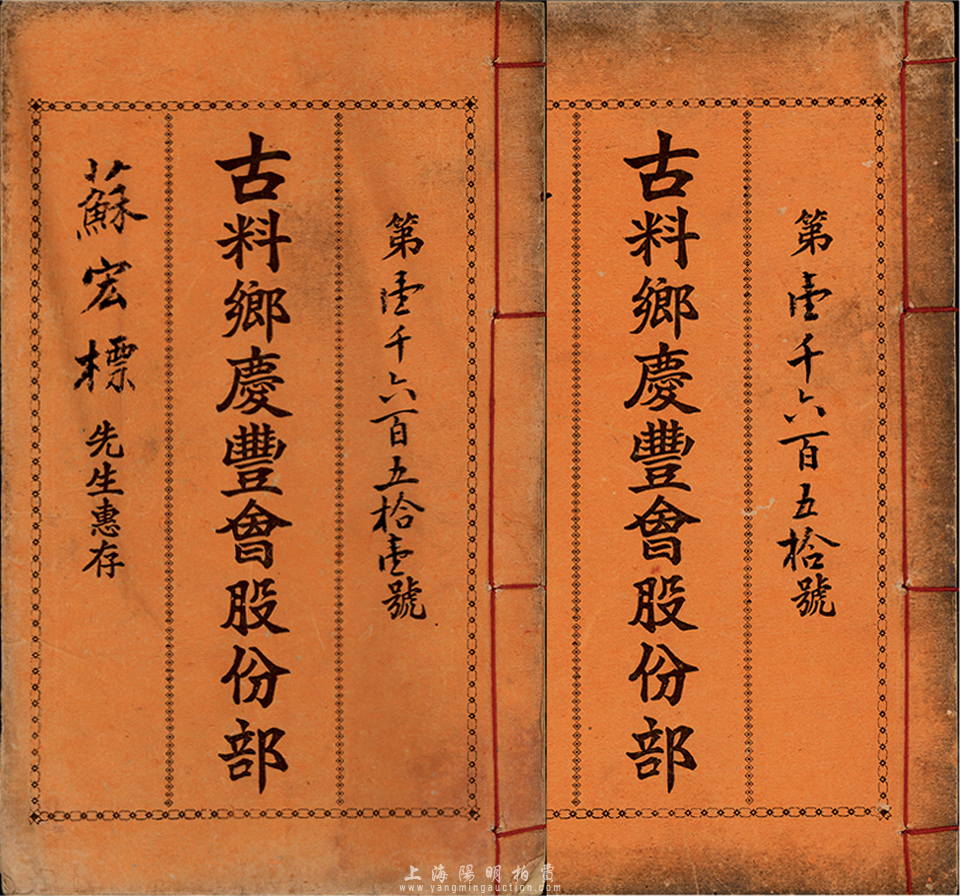 第壹千六百五拾號
古料鄉慶豐會股份部
第壹千六百五拾壹號
古料鄉慶豐會股份部
蘇宏標先生惠存
上海陽明拍賣
www.yangmingauction.com